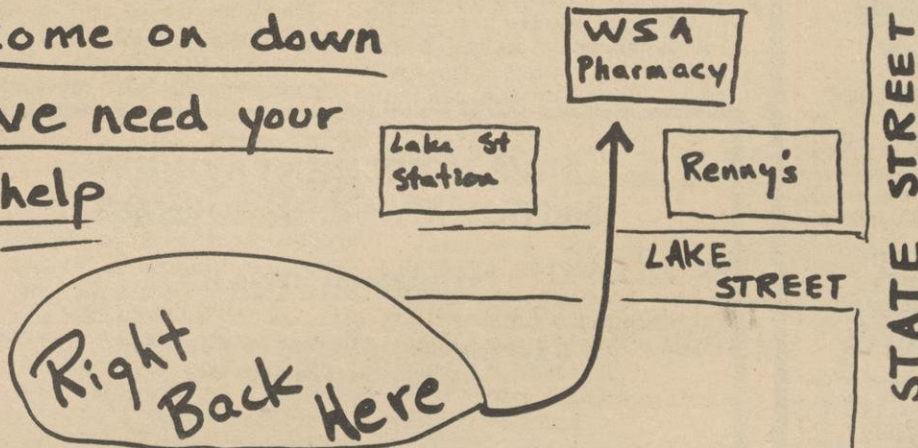 ome on down
we need your
help
WSA
Pharmacy
Lake St
Station
Renny's
LAKE
STREET
STATE STREET
Right
Back
Here